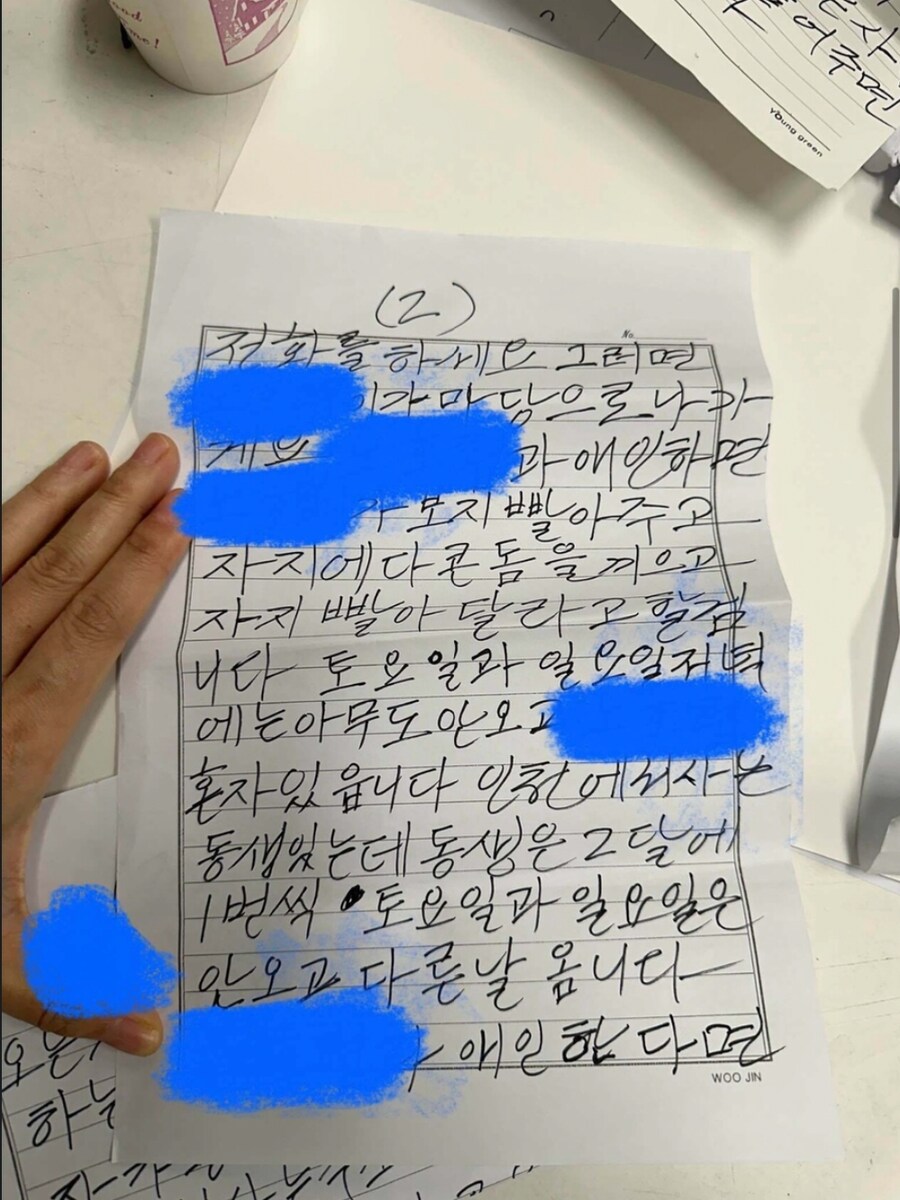 ood
me!
사
어주면
Young green
(2)
No.
저화를 하세요 그러면
가 마당으로 나가
과 애인하면
가 보지 빨아 주고
자지에다 콘돔을 끼으고
자지 빨아 달라고 할겁
니다 토요일과 일요일저녁
에는 아무도 안오고
혼자 있읍니다 인천에 사는
동생있는데 동생은 2달에
1번씩 토요일과 일요일은
안오고 다른날 옵니다
애인 한다면
WOO JIN
하